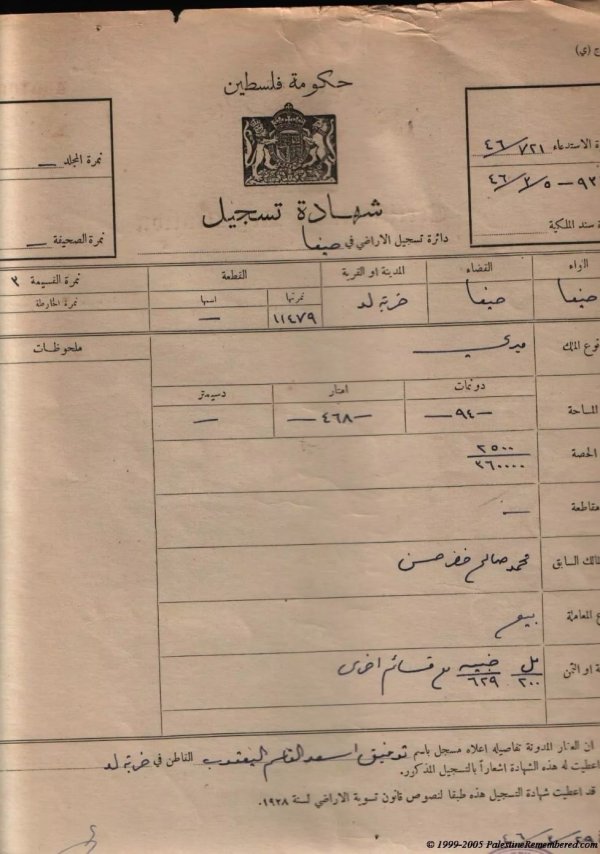 ج (ي)
حكومة فلسطين
ة الاستدعاء ٤٦/٧٢١
٤٦/٣/٥ — ٩٣
ة سند الملكية
نمرة المجلد —
نمرة الصحيفة —
شهادة تسجيل
دائرة تسجيل الاراضي في حيفا
اللواء القضاء المدينة او القرية القطعة نمرة القسيمة ٣
نمرتها اسمها نمرة الخارطة
حيفا حيفا خربة لد ١١٤٧٩ —
نوع الملك ميري ملحوظات
دونمات امتار دسيمتر
المساحة —٩٤— —٤٦٨— —
الحصة ٢٥٠٠/٣٦٠٠٠٠
مقاطعة —
المالك السابق محمد صالح خضر حسن
ع المعاملة بيع
ة او الثمن مل ٢٠٠ جنيه ٦٢٩ مع قسائم اخرى
ان العقار المدونة تفاصيله اعلاه مسجل باسم توفيق اسعد القاسم اليعقوب القاطن في خربة لد
اعطيت له هذه الشهادة اشعاراً بالتسجيل المذكور.
قد اعطيت شهادة التسجيل هذه طبقا لنصوص قانون تسوية الاراضي لسنة ١٩٢٨.
© 1999-2005 PalestineRemembered.com